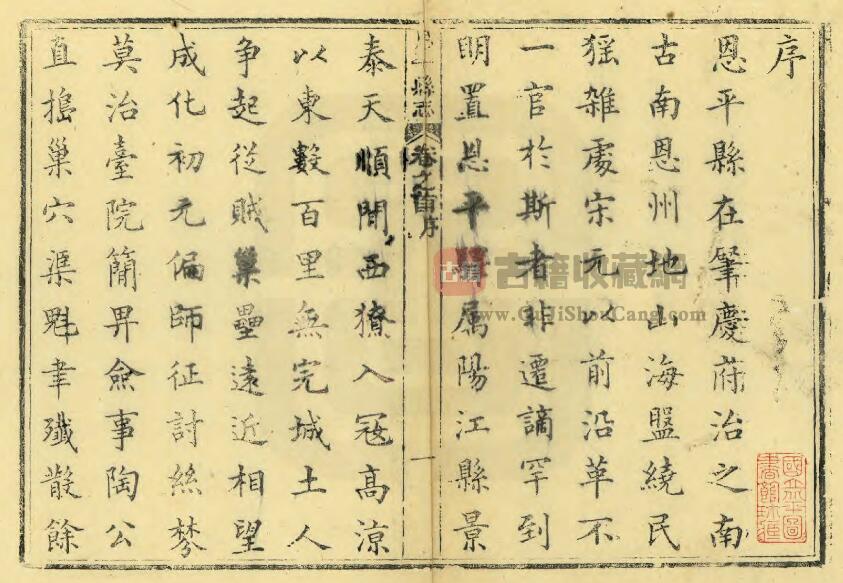 序
恩平縣在肇慶府治之南
古南恩州地山海盤繞民
猺雜處宋元以前沿革不
一官於斯者非遷謫罕到
明置恩平縣属陽江縣景
縣志
卷之首序
一
泰天順間西獠入宼高凉
以東數百里無完城土人
争起從賊巢壘遠近相望
成化初元偏師征討絲棼
莫治臺院簡畀僉事陶公
直搗巢穴渠魁聿殲散餘
古籍
古籍收藏網
www.GuJiShouCang.com
國立北平圖
書館珍藏